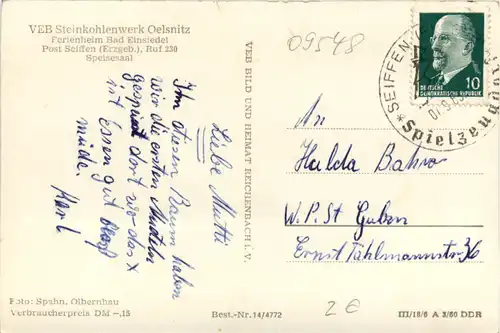 VEB Steinkohlenwerk Oelsnitz
Ferienheim Bad Einsiedel
Post Seiffen (Erzgeb.), Ruf 230
Speisesaal
Liebe Mutti
Im diesen Raum haben
wir die ersten Nudeln
gespeist dort wo das X
ist Essen gut
müde. Karl
Foto: Spahn, Olbernhau
Verbraucherpreis DM -,15
VEB BILD UND HEIMAT REICHENBACH i. V.
Best.-Nr. 14/4772
09548
SEIFFEN
Spielzeug
DEUTSCHE
DEMOKRATISCHE REPUBLIK
10
An
Hulda Bahro
W.P.St Guben
Ernst Thälmannstr 36
2 €
III/18/6 A 3/60 DDR